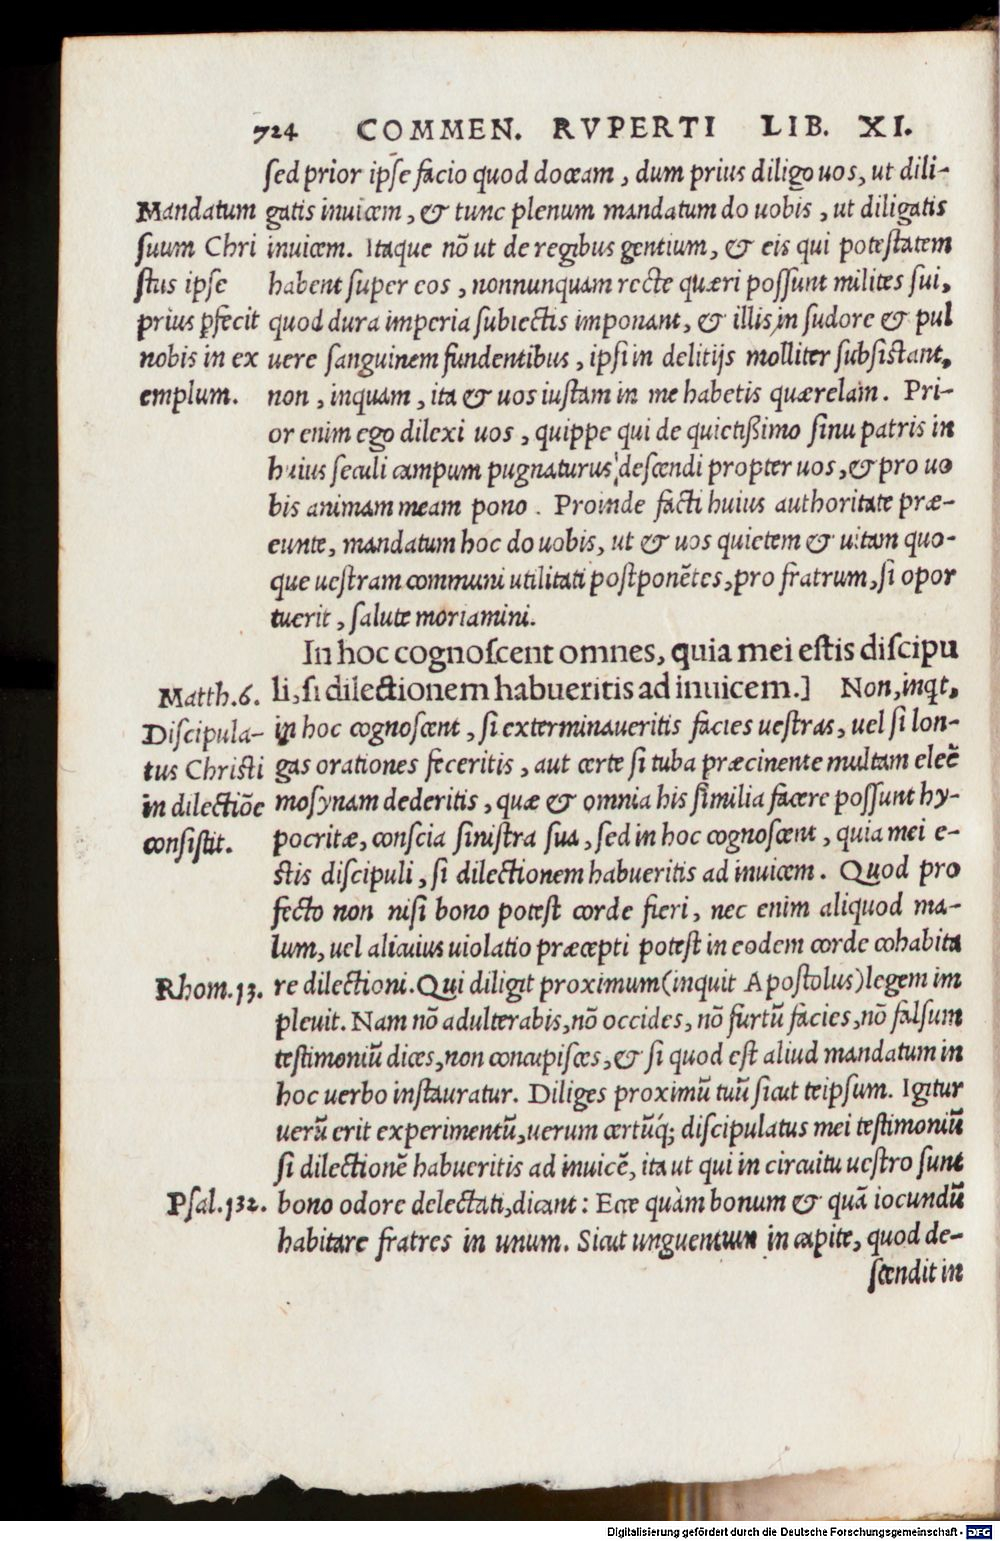 724 COMMEN. RVPERTI LIB. XI.
ſed prior ipſe facio quod doceam, dum prius diligo uos, ut dili-
gatis inuicem, & tunc plenum mandatum do uobis, ut diligatis
inuicem. Itaque nõ ut de regibus gentium, & eis qui poteſtatem
habent ſuper eos, nonnunquam recte quæri poſſunt milites ſui,
quod dura imperia ſubiectis imponant, & illis in ſudore & pul
uere ſanguinem fundentibus, ipſi in delitijs molliter ſubſistant,
non, inquam, ita & uos iuſtam in me habetis quærelam. Pri-
or enim ego dilexi uos, quippe qui de quietißimo ſinu patris in
huius ſeculi campum pugnaturus deſcendi propter uos, & pro uo
bis animam meam pono. Proinde facti huius authoritate præ-
eunte, mandatum hoc do uobis, ut & uos quietem & uitam quo-
que ueſtram communi utilitati poſtponẽtes, pro fratrum, ſi opor
tuerit, ſalute moriamini.
Mandatum
ſuum Chri
ſtus ipſe
prius ꝑfecit
nobis in ex
emplum.
In hoc cognoſcent omnes, quia mei eſtis diſcipu
li, ſi dilectionem habueritis ad inuicem.] Non, inqt,
in hoc cognoſcent, ſi exterminaueritis facies ueſtras, uel ſi lon-
gas orationes feceritis, aut certe ſi tuba præcinente multam eleẽ
moſynam dederitis, quæ & omnia his ſimilia facere poſſunt hy-
pocritæ, conſcia ſiniſtra ſua, ſed in hoc cognoſcent, quia mei e-
ſtis diſcipuli, ſi dilectionem habueritis ad inuicem. Quod pro
fecto non niſi bono poteſt corde fieri, nec enim aliquod ma-
lum, uel alicuius uiolatio præcepti poteſt in eodem corde cohabita
re dilectioni. Qui diligit proximum (inquit Apoſtolus) legem im
pleuit. Nam nõ adulterabis, nõ occides, nõ furtũ facies, nõ falſum
teſtimoniũ dices, non concupiſces, & ſi quod eſt aliud mandatum in
hoc uerbo inſtauratur. Diliges proximũ tuũ ſicut teipſum. Igitur
uerũ erit experimentũ, uerum certũq́; diſcipulatus mei teſtimoniũ
ſi dilectionẽ habueritis ad inuicẽ, ita ut qui in circuitu ueſtro ſunt
bono odore delectati, dicant: Ecce quàm bonum & quã iocundũ
habitare fratres in unum. Sicut unguentum in capite, quod de-
ſcendit in
Matth.6.
Diſcipula-
tus Chriſti
in dilectiõe
conſiſtit.
Rhom.13.
Pſal.132.
Digitalisierung gefördert durch die Deutsche Forschungsgemeinschaft - DFG